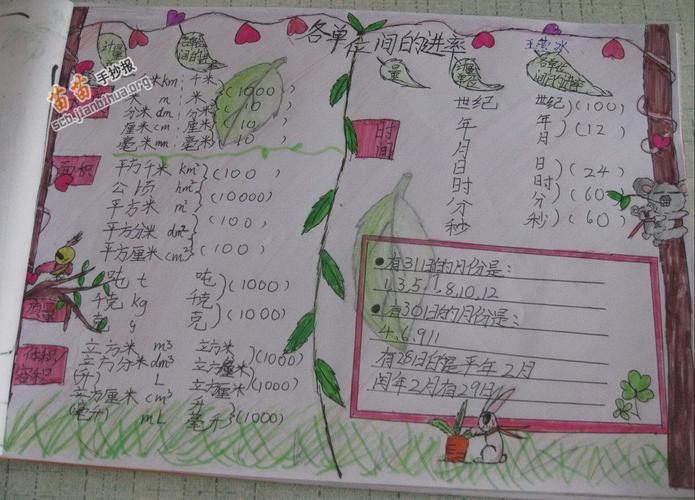 各单位间的进率
王莹冰
苗苗手抄报
scb.jianbihua.org
计量
各单位间的进率
量
各单位间的进率
米km 千米
米 m 米 (1000)
分米 dm 分米 (10)
厘米 cm 厘米 (10)
毫米 mm 毫米 (10)
面积
平方千米 km²
公顷 hm² (100)
平方米 m² (10000)
平方分米 dm² (100)
平方厘米 cm² (100)
吨 t 吨
千克 kg 千克 (1000)
克 g 克 (1000)
质量
体积
容积
立方米 m³ 立方米
立方分米 dm³ 立方分米 (1000)
(升) L 升
立方厘米 cm³ 立方厘米 (1000)
(毫升) mL 毫升 (1000)
时间
世纪 世纪
年 年 (100)
月 月 (12)
日 日
时 时 (24)
分 分 (60)
秒 秒 (60)
●有31日的月份是:
1.3.5.7.8.10.12
●有30日的月份是:
4.6.911
有28日的是平年2月
闰年2月有29日